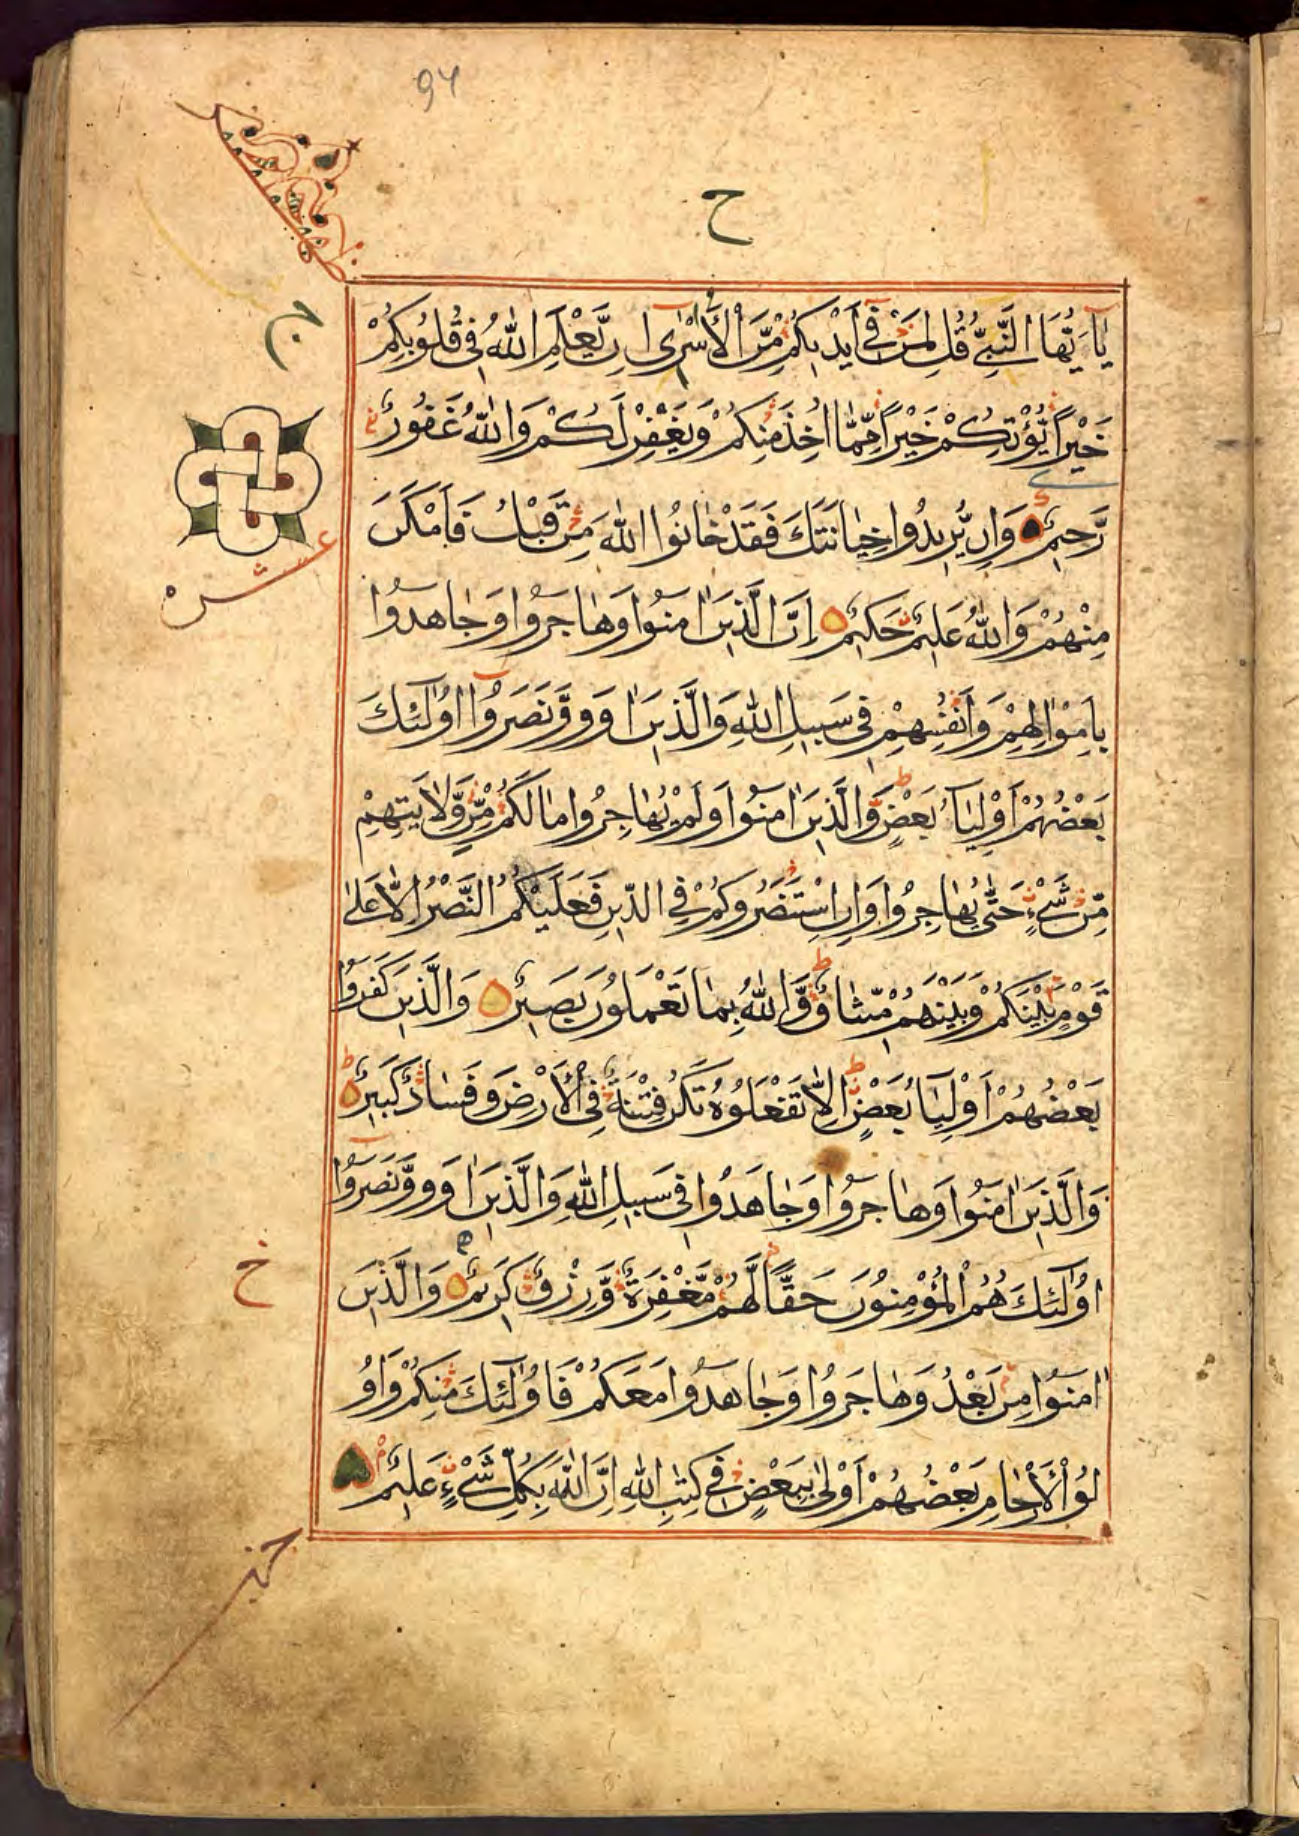 94
ح
يَا أَيُّهَا النَّبِيُّ قُلْ لِمَنْ فِي أَيْدِيكُمْ مِّنَ الْأَسْرَى إِن يَّعْلَمِ اللّٰهُ فِي قُلُوبِكُمْ
ج
خَيْرًا يُّؤْتِكُمْ خَيْرًا مِّمَّا اُخِذَ مِنْكُمْ وَيَغْفِرْ لَكُمْ وَاللّٰهُ غَفُورٌ
رَّحِيمٌ وَاِن يُّرِيدُوا خِيَانَتَكَ فَقَدْ خَانُوا اللّٰهَ مِنْ قَبْلُ فَاَمْكَنَ
عشر
مِنْهُمْ وَاللّٰهُ عَلِيمٌ حَكِيمٌ اِنَّ الَّذِينَ اٰمَنُوا وَهَاجَرُوا وَجَاهَدُوا
بِاَمْوَالِهِمْ وَاَنْفُسِهِمْ فِي سَبِيلِ اللّٰهِ وَالَّذِينَ اٰوَوْا وَّنَصَرُوا اُولٰئِكَ
بَعْضُهُمْ اَوْلِيَاءُ بَعْضٍ وَّالَّذِينَ اٰمَنُوا وَلَمْ يُهَاجِرُوا مَا لَكُمْ مِّنْ وَّلَايَتِهِمْ
مِّنْ شَيْءٍ حَتّٰى يُهَاجِرُوا وَاِنِ اسْتَنْصَرُوكُمْ فِي الدِّينِ فَعَلَيْكُمُ النَّصْرُ اِلَّا عَلٰى
قَوْمٍ بَيْنَكُمْ وَبَيْنَهُمْ مِّيثَاقٌ وَّاللّٰهُ بِمَا تَعْمَلُونَ بَصِيرٌ وَالَّذِينَ كَفَرُوا
بَعْضُهُمْ اَوْلِيَاءُ بَعْضٍ اِلَّا تَفْعَلُوهُ تَكُنْ فِتْنَةٌ فِي الْاَرْضِ وَفَسَادٌ كَبِيرٌ
وَالَّذِينَ اٰمَنُوا وَهَاجَرُوا وَجَاهَدُوا فِي سَبِيلِ اللّٰهِ وَالَّذِينَ اٰوَوْا وَّنَصَرُوا
اُولٰئِكَ هُمُ الْمُؤْمِنُونَ حَقًّا لَّهُمْ مَّغْفِرَةٌ وَّرِزْقٌ كَرِيمٌ وَالَّذِينَ
خ
اٰمَنُوا مِنْ بَعْدُ وَهَاجَرُوا وَجَاهَدُوا مَعَكُمْ فَاُولٰئِكَ مِنْكُمْ وَاُو
لُوا الْاَرْحَامِ بَعْضُهُمْ اَوْلٰى بِبَعْضٍ فِي كِتٰبِ اللّٰهِ اِنَّ اللّٰهَ بِكُلِّ شَيْءٍ عَلِيمٌ